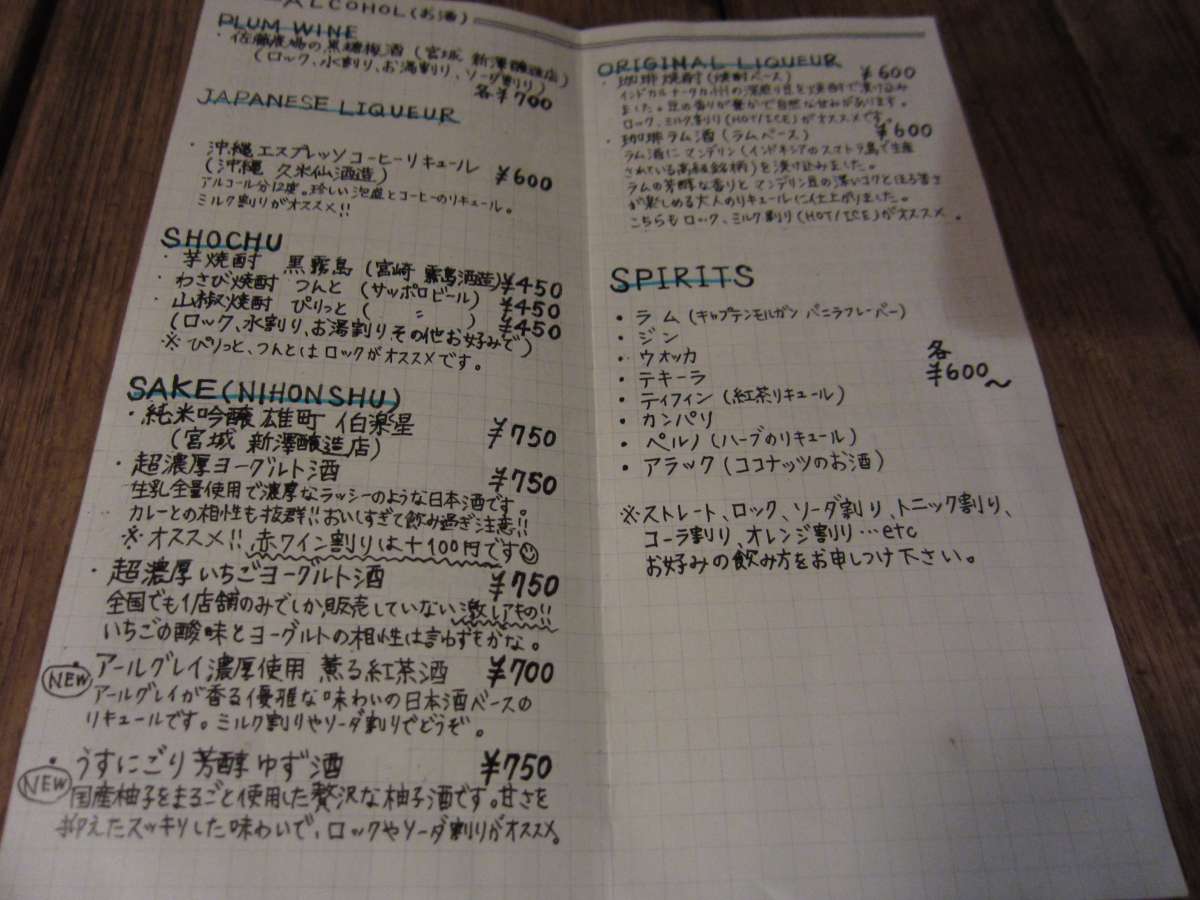 ALCOHOL(お酒)
PLUM WINE
・佐藤農場の黒糖梅酒(宮城 新澤醸造店)
(ロック、水割り、お湯割り、ソーダ割り)
各¥700
JAPANESE LIQUEUR
・沖縄エスプレッソコーヒーリキュール
(沖縄 久米仙酒造) ¥600
アルコール分12度。珍しい泡盛とコーヒーのリキュール。
ミルク割りがオススメ!!
SHOCHU
・芋焼酎 黒霧島(宮崎 霧島酒造)¥450
・わさび焼酎 つんと(サッポロビール) ¥450
・山椒焼酎 ぴりっと( 〃 ) ¥450
(ロック、水割り、お湯割りその他お好みで)
※ぴりっと、つんとはロックがオススメです。
SAKE(NIHONSHU)
・純米吟醸 雄町 伯楽星 ¥750
(宮城 新澤醸造店)
・超濃厚ヨーグルト酒 ¥750
生乳全量使用で濃厚なラッシーのような日本酒です。
カレーとの相性も抜群!!おいしすぎて飲み過ぎ注意!!
※オススメ!!赤ワイン割りは+100円です☺
・超濃厚いちごヨーグルト酒 ¥750
全国でも1店舗のみでしか販売していない激レアもの!!
いちごの酸味とヨーグルトの相性は言わずもがな。
NEW アールグレイ濃厚使用 薫る紅茶酒 ¥700
アールグレイが香る優雅な味わいの日本酒ベースの
リキュールです。ミルク割りやソーダ割りでどうぞ。
・うすにごり芳醇ゆず酒 ¥750
NEW 国産柚子をまるごと使用した贅沢な柚子酒です。甘さを
抑えたスッキリした味わいで、ロックやソーダ割りがオススメ。
ORIGINAL LIQUEUR
・珈琲焼酎(焼酎ベース) ¥600
インドカルナータカ州の深煎り豆を焼酎で漬け込み
ました。豆の香りが豊かで自然な甘みがあります。
ロック、ミルク割り(HOT/ICE)がオススメです。
・珈琲ラム酒(ラムベース) ¥600
ラム酒にマンデリン(インドネシアのスマトラ島で生産
されている高級銘柄)を漬け込みました。
ラムの芳醇な香りとマンデリン豆の深いコクとほろ苦さ
が楽しめる大人のリキュールに仕上がりました。
こちらもロック、ミルク割り(HOT/ICE)がオススメ。
SPIRITS
・ラム(キャプテンモルガン バニラフレーバー)
・ジン
・ウオッカ
・テキーラ
・ティフィン(紅茶リキュール)
・カンパリ
・ペルノ(ハーブのリキュール)
・アラック(ココナッツのお酒)
各
¥600〜
※ストレート、ロック、ソーダ割り、トニック割り、
コーラ割り、オレンジ割り…etc
お好みの飲み方をお申しつけ下さい。